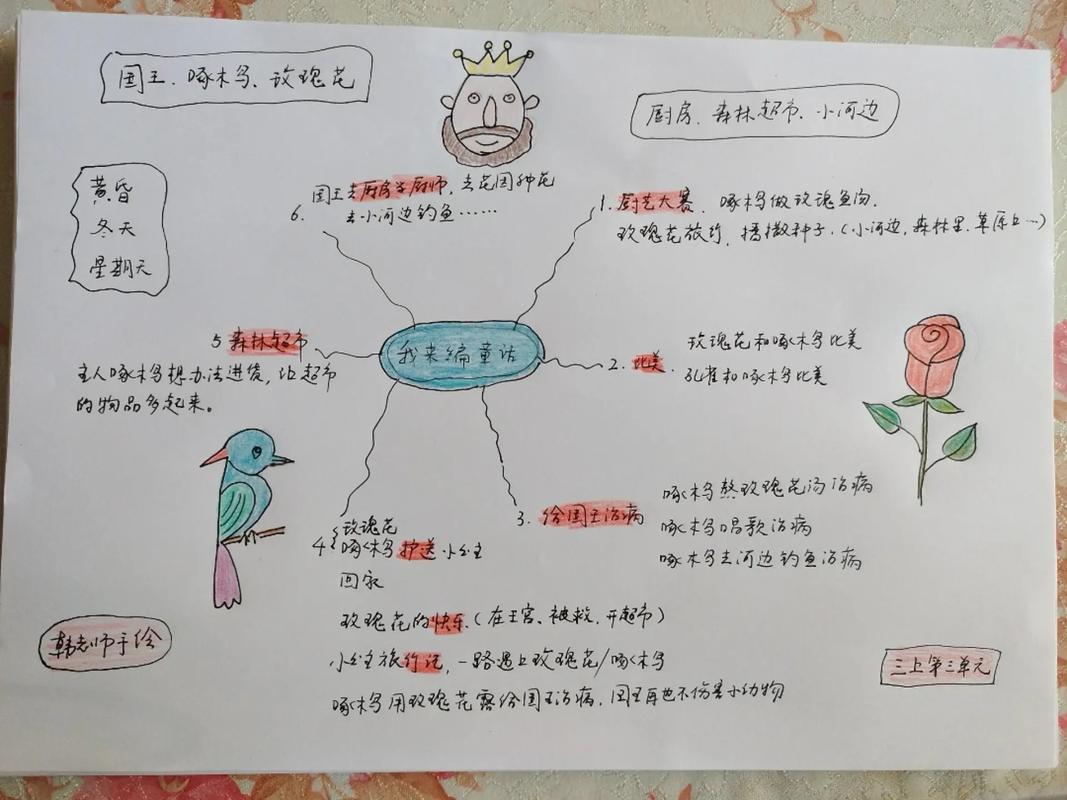 国王、啄木鸟、玫瑰花
厨房、森林超市、小河边
黄昏
冬天
星期天
我来编童话
1. 厨艺大赛、啄木鸟做玫瑰鱼肉.
玫瑰花旅行,播撒种子.(小河边,森林里,草原上…)
2. 比美.
玫瑰花和啄木鸟比美
孔雀和啄木鸟比美
3. 给国王治病
啄木鸟熬玫瑰花汤治病
啄木鸟唱歌治病
啄木鸟去河边钓鱼治病
4
玫瑰花
啄木鸟护送小公主
回家
玫瑰花的快乐.(在王宫、被救,开超市)
小公主旅行记,一路遇上玫瑰花/啄木鸟
啄木鸟用玫瑰花露给国王治病,国王再也不伤害小动物
5 森林超市
主人啄木鸟想办法进货,让超市
的物品多起来。
6. 国王去厨房当厨师,去花园种花
去小河边钓鱼……
韩老师手绘
三上第三单元